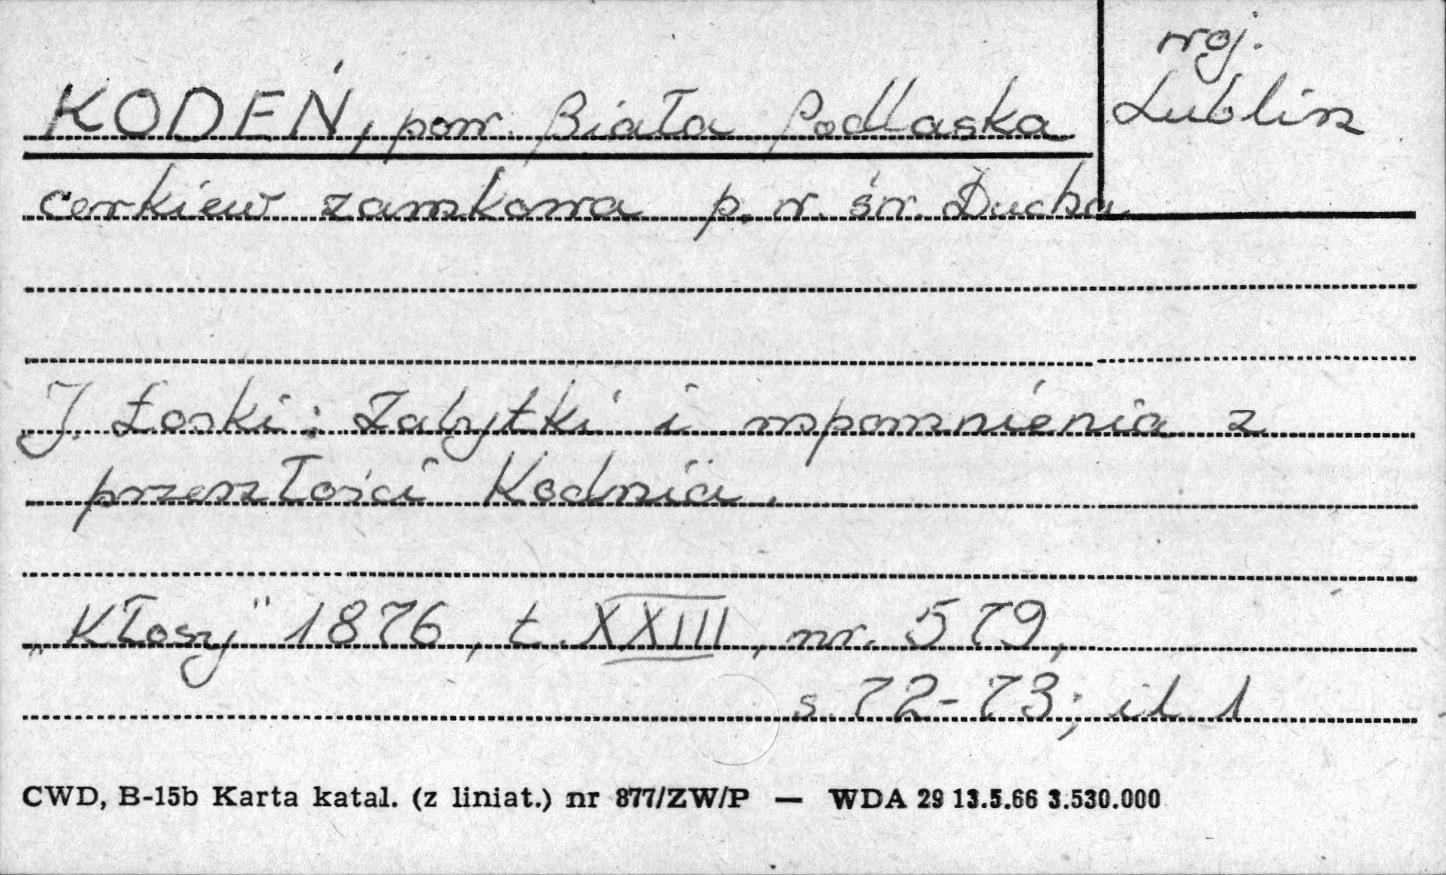 woj.
Lublin
KODEŃ, pow. Biała Podlaska
cerkiew zamkowa p. w. św. Ducha
J. Łoski: Zabytki i wspomnienia z
przeszłości Kodnia.
„Kłosy" 1876, t. XXIII, nr. 579,
s. 72-73; il. 1
CWD, B-15b Karta katal. (z liniat.) nr 877/ZW/P — WDA 29 13.5.66 3.530.000